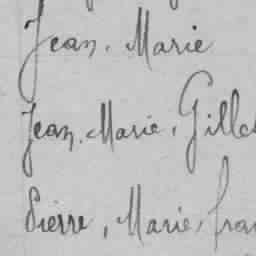 Jean, Marie
Jean, Marie, Gilles
Pierre, Marie, fran